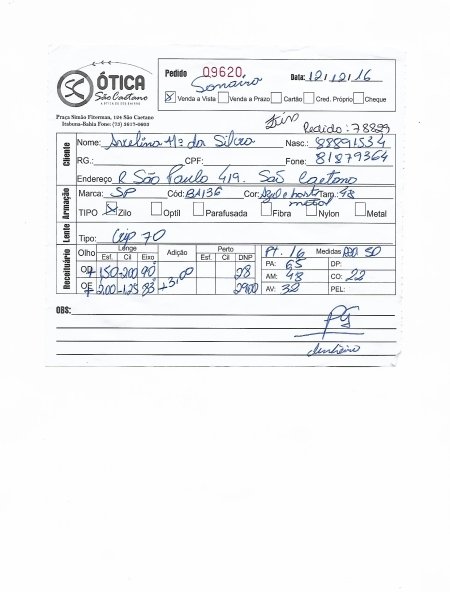 ÓTICA
São Caetano
Pedido 09620 Data: 12/12/16
Venda a Vista Venda a Prazo Cartão Cred. Próprio Cheque
Praça Simão Fiterman, 124 São Caetano
Itabuna-Bahia Fone: (73) 3617-0603
Pedido: 78829
Cliente
Nome: Arcelina Mª da Silva Nasc.: 88891534
RG.: CPF: Fone: 81879364
Endereço R São Paulo 419. São Caetano
Armação
Marca: SP Cód: BA136 Cor: Tam.: 48
metal
TIPO Zilo Optil Parafusada Fibra Nylon Metal
Lente
Tipo: 70
Receituário
Olho Longe Adição Perto Pt. 16 Medidas 50
Esf. Cil Eixo Esf. Cil DNP PA: 65 DP:
OD +1,50 -2,00 90 +3,00 28 AM: 48 CO: 22
OE +2,00 -1,25 83 2900 AV: 32 PEL:
OBS:
PG
dinheiro